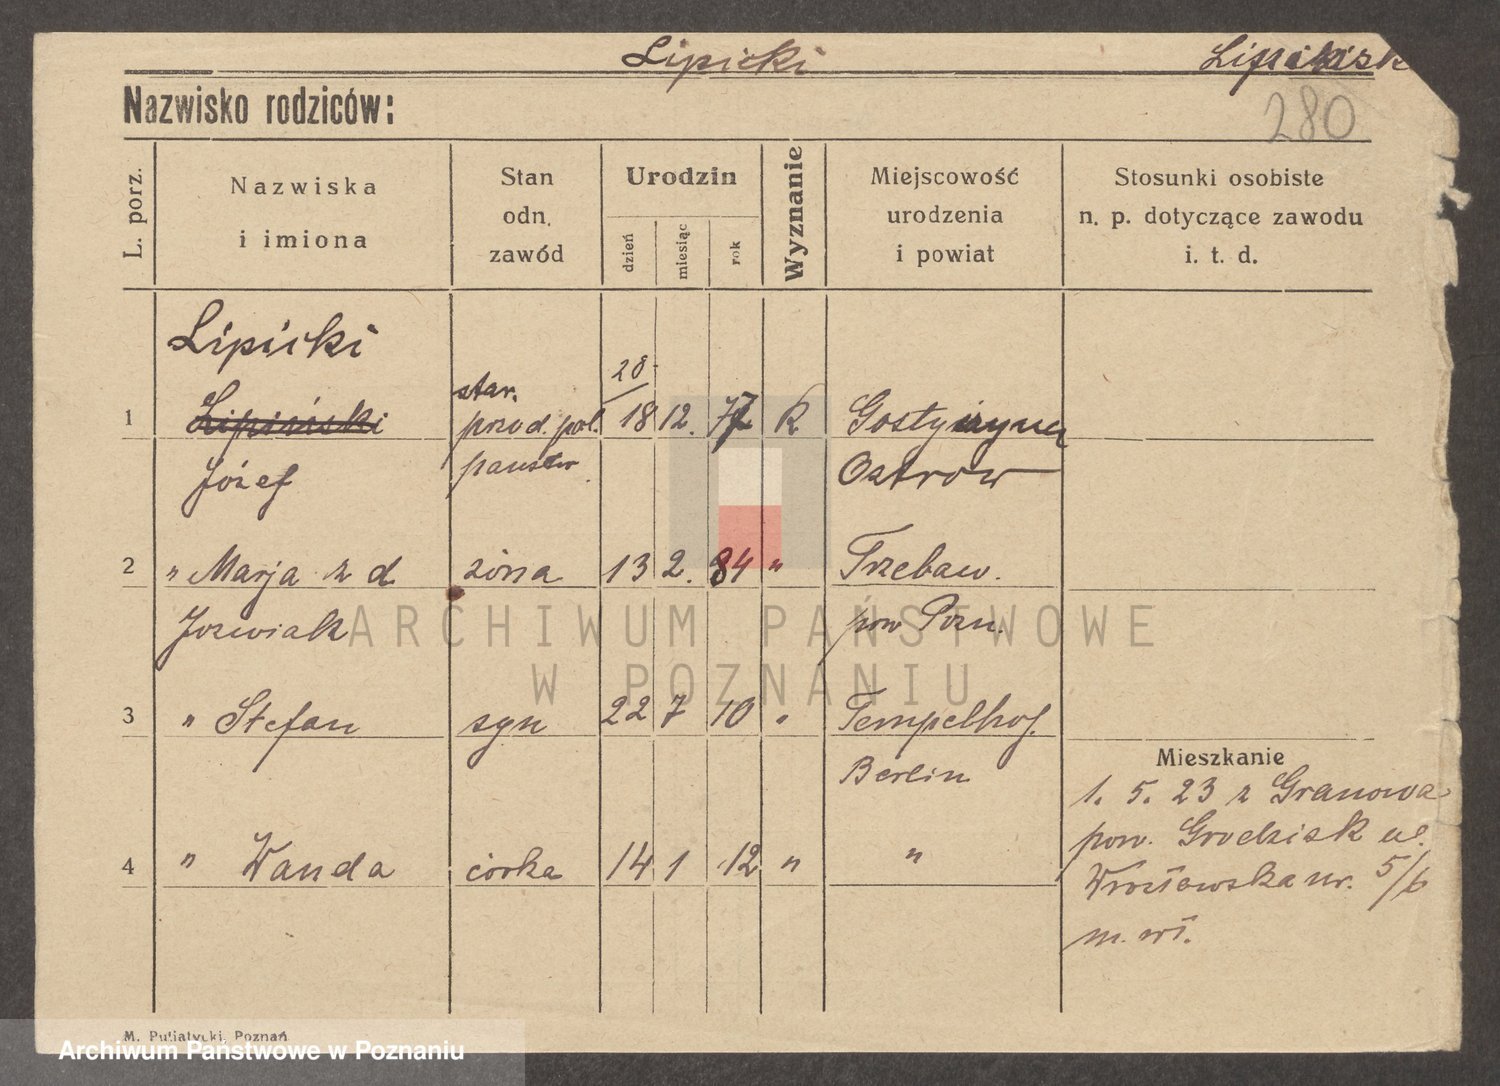 Lipicki
280
Nazwisko rodziców:
L. porz.
Nazwiska
i imiona
Stan
odn.
zawód
Urodzin
dzień
miesiąc
rok
Wyznanie
Miejscowość
urodzenia
i powiat
Stosunki osobiste
n. p. dotyczące zawodu
i. t. d.
Lipicki
28
star.
1 Lipiński przod. pol. 18 12. 77 R Gostyczyna
Józef państw. Ostrów
2 " Marja z d żona 13 2. 84 " Trzebaw.
Jozwiak pow Pozn.
3 " Stefan syn 22 7 10 " Tempelhof.
Berlin
Mieszkanie
1. 5. 23 z Granowa
pow. Grodzisk ul.
4 " Wanda córka 14 1 12 " "
nr. 5/6
M. Putiatycki, Poznań
ARCHIWUM PAŃSTWOWE
W POZNANIU
Archiwum Państwowe w Poznaniu